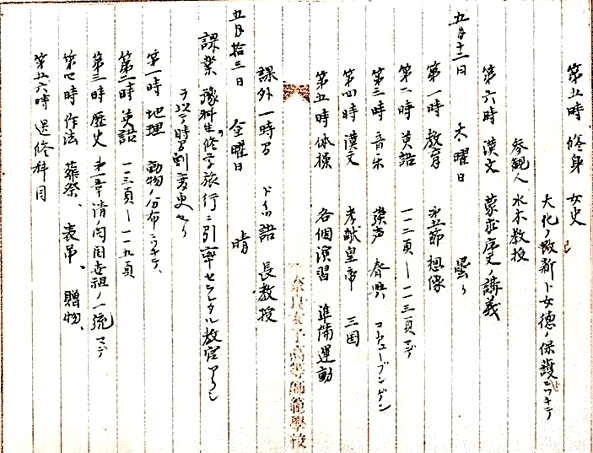 第五時 修身 女史
大化ノ改新ト女徳ノ保護ニツキテ
参観人 水木教授
第六時 漢文 蒙求 ノ講義
五月十二日 木曜日 曇リ
第一時 教育 第五節 想像
第二時 英語 一一二頁―一一三頁マデ
第三時 音楽 発声 春興 コールユーブンゲン
第四時 漢文 孝献皇帝 三国
第五時 体操 各個演習 準備運動
奈良女子高等師範學校
課外一時間 ドイツ語 長教授
五月拾三日 金曜日 晴
課業 豫科生修学旅行ニ引率セラレタル教官アリシ
ヲ以テ時間割変更セリ
第一時 地理 動物ノ分布ニツキテ
第二時 英語 一一三頁―一一九頁
第三時 歴史 第一章清ノ内国世祖ノ一統マデ
第四時 作法 葬祭、表弔、贈物、
第五六時 選修科目